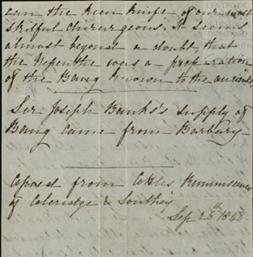 the keen knife of our most
skilful chirurgeons. It seems
almost beyond a doubt that
the Nepenthe was a preparation
of the Bang known to the ancients
Sir Joseph Banks's supply of
Bang came from Barbary
Copied from Cottle's Reminiscences
of Coleridge & Southey
Sep 25th